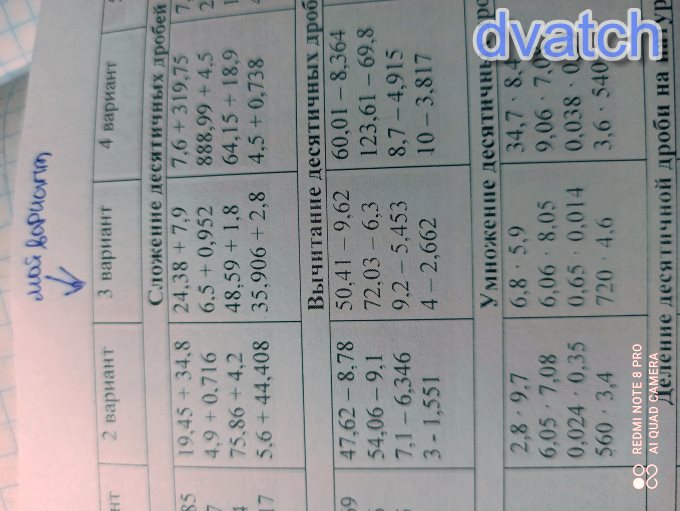 dvatch
мой вариант
нт
2 вариант
3 вариант
4 вариант
Сложение десятичных дробей
85
19,45 + 34,8
24,38 + 7,9
7,6 + 319,75
7
4,9 + 0,716
6,5 + 0,952
888,99 + 4,5
4
75,86 + 4,2
48,59 + 1,8
64,15 + 18,9
17
5,6 + 44,408
35,906 + 2,8
4,5 + 0,738
Вычитание десятичных дроб
69
47,62 – 8,78
50,41 – 9,62
60,01 – 8,364
54,06 – 9,1
72,03 – 6,3
123,61 – 69,8
7,1 – 6,346
9,2 – 5,453
8,7 – 4,915
3 - 1,551
4 – 2,662
10 – 3,817
Умножение десятичных
2,8 · 9,7
6,8 · 5,9
34,7 · 8,4
6,05 · 7,08
6,06 · 8,05
9,06 · 7,0
0,024 · 0,35
0,65 · 0,014
0,038 · 0,
560 · 3,4
720 · 4,6
3,6 · 540
Деление десятичной дроби на
REDMI NOTE 8 PRO
AI QUAD CAMERA